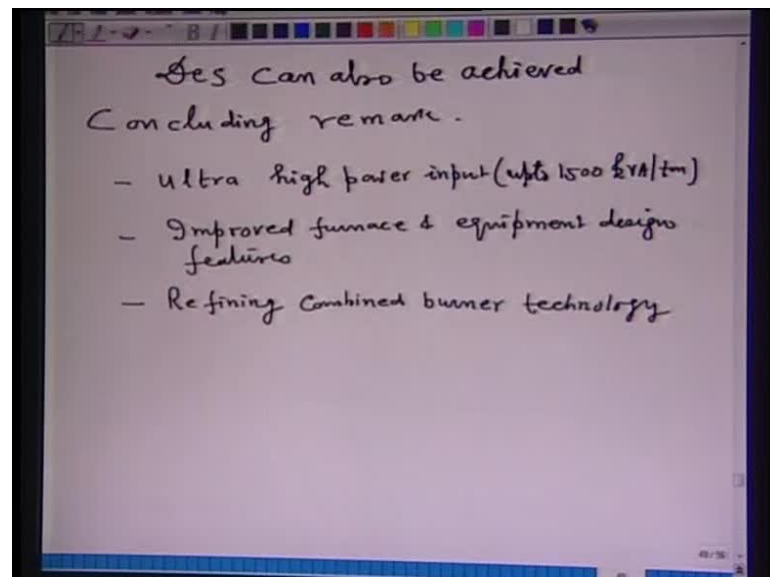 Des can also be achieved
Concluding remark.
- Ultra high power input (upto 1500 kVA/ton)
- Improved furnace & equipment designs
features
- Refining combined burner technology
49/56